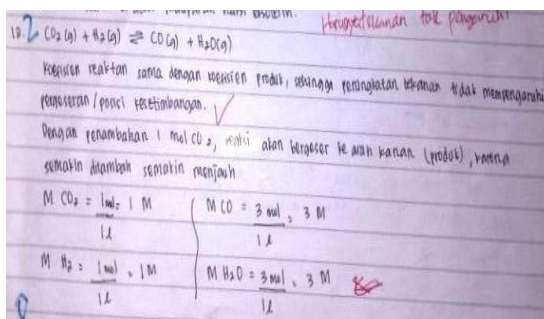 tak
12. 2 CO₂ (g) + H₂ (g) ⇌ CO (g) + H₂O (g)
koefisien reaktan sama dengan koefisien produk, sehingga peningkatan tekanan tidak mempengaruhi
pergeseran / posisi kesetimbangan.
Dengan penambahan 1 mol CO₂, reaksi akan bergeser ke arah kanan (produk), karena
semakin ditambah semakin menjauh
M CO₂ = 1 mol = 1 M
1 l
M H₂ = 1 mol = 1 M
1 l
M CO = 3 mol = 3 M
1 l
M H₂O = 3 mol = 3 M
1 l
0